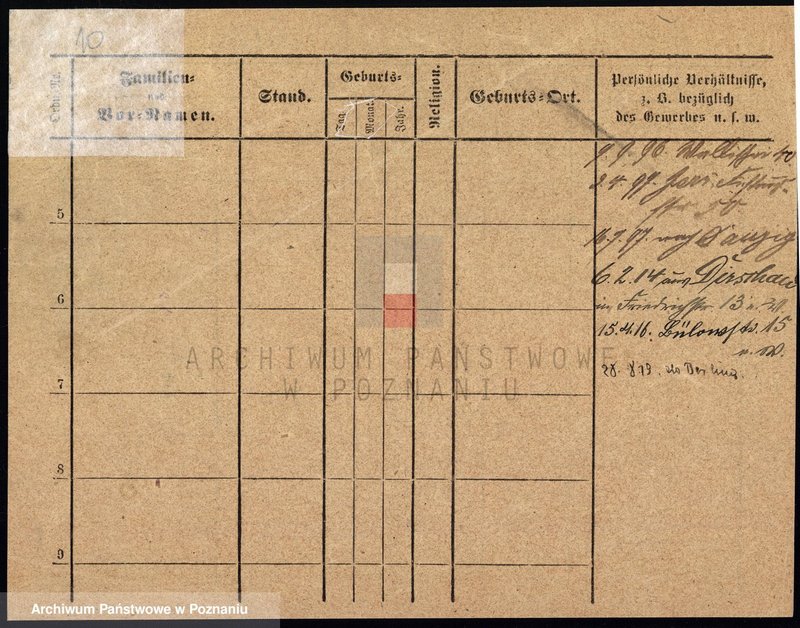 10
Ordn. No.
Familien=
und
Vor=Namen.
Stand.
Geburts=
Tag
Monat.
Jahr.
Religion.
Geburts=Ort.
Persönliche Verhältnisse,
z. B. bezüglich
des Gewerbes u. s. w.
9.9.96. Wallischei 40
2.4.97.
50
16.7.97. nach Danzig
6.2.14 aus Dirschau
in Friedrichstr 13 u. W.
15.4.16. Bülowstr. 15
u. W.
28. 8 19. do Berlina.
5
6
7
8
9
ARCHIWUM PAŃSTWOWE
W POZNANIU
Archiwum Państwowe w Poznaniu